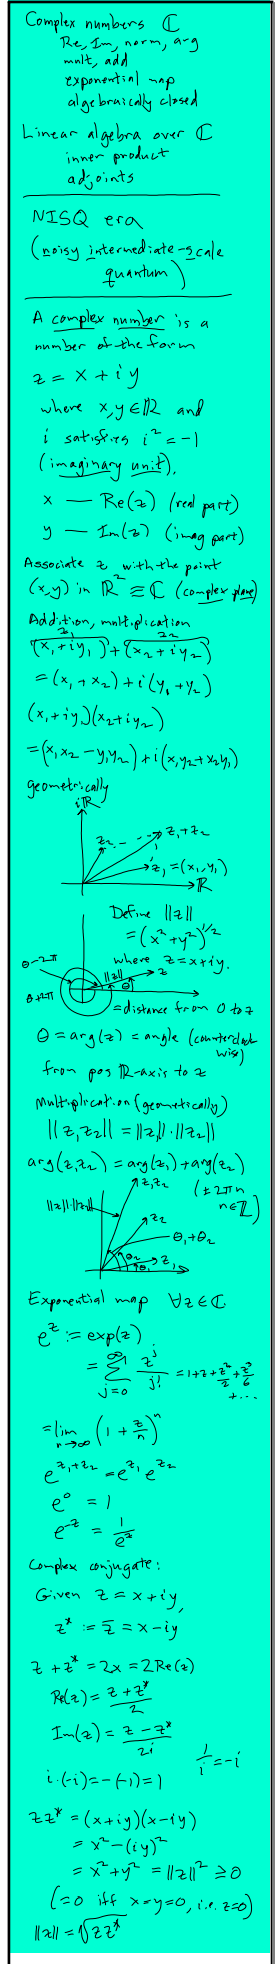 Complex numbers ℂ
Re, Im, norm, arg
mult, add
exponential map
algebraically closed
Linear algebra over ℂ
inner product
adjoints
NISQ era
(noisy intermediate-scale
quantum)
A complex number is a
number of the form
z = x + i y
where x, y ∈ ℝ and
i satisfies i² = -1
(imaginary unit).
x — Re(z) (real part)
y — Im(z) (imag part)
Associate z with the point
(x,y) in ℝ² ≡ ℂ (complex plane)
Addition, multiplication
z₁ z₂
(x₁+iy₁)+(x₂+iy₂)
=(x₁+x₂)+i(y₁+y₂)
(x₁+iy₁)(x₂+iy₂)
=(x₁x₂-y₁y₂)+i(x₁y₂+x₂y₁)
geometrically
iℝ
z₂ z₁+z₂
z₁=(x₁,y₁)
ℝ
Define ‖z‖
=(x²+y²)^{1/2}
where z=x+iy.
θ-2π ‖z‖ z
θ+2π θ
=distance from 0 to z
θ=arg(z)=angle (counterclock
wise)
from pos ℝ-axis to z
Multiplication (geometrically)
‖z₁z₂‖=‖z₁‖·‖z₂‖
arg(z₁z₂)=arg(z₁)+arg(z₂)
(±2πn
n∈ℤ)
z₁z₂
‖z₁‖·‖z₂‖
z₂
θ₁+θ₂
θ₂ z₁
θ₁
Exponential map ∀z∈ℂ
e^z := exp(z)
=∑_{j=0}^{∞} z^j/j! =1+z+z²/2+z³/6
+...
=lim_{n→∞} (1+z/n)^n
e^{z₁+z₂}=e^{z₁}e^{z₂}
e⁰ = 1
e^{-z} = 1/e^z
Complex conjugate:
Given z=x+iy,
z* := z̄ = x-iy
z+z*=2x=2Re(z)
Re(z)=(z+z*)/2
Im(z)=(z-z*)/2i
1/i=-i
i·(-i)=-(-1)=1
zz*=(x+iy)(x-iy)
=x²-(iy)²
=x²+y²=‖z‖²≥0
(=0 iff x=y=0, i.e. z=0)
‖z‖=√zz*